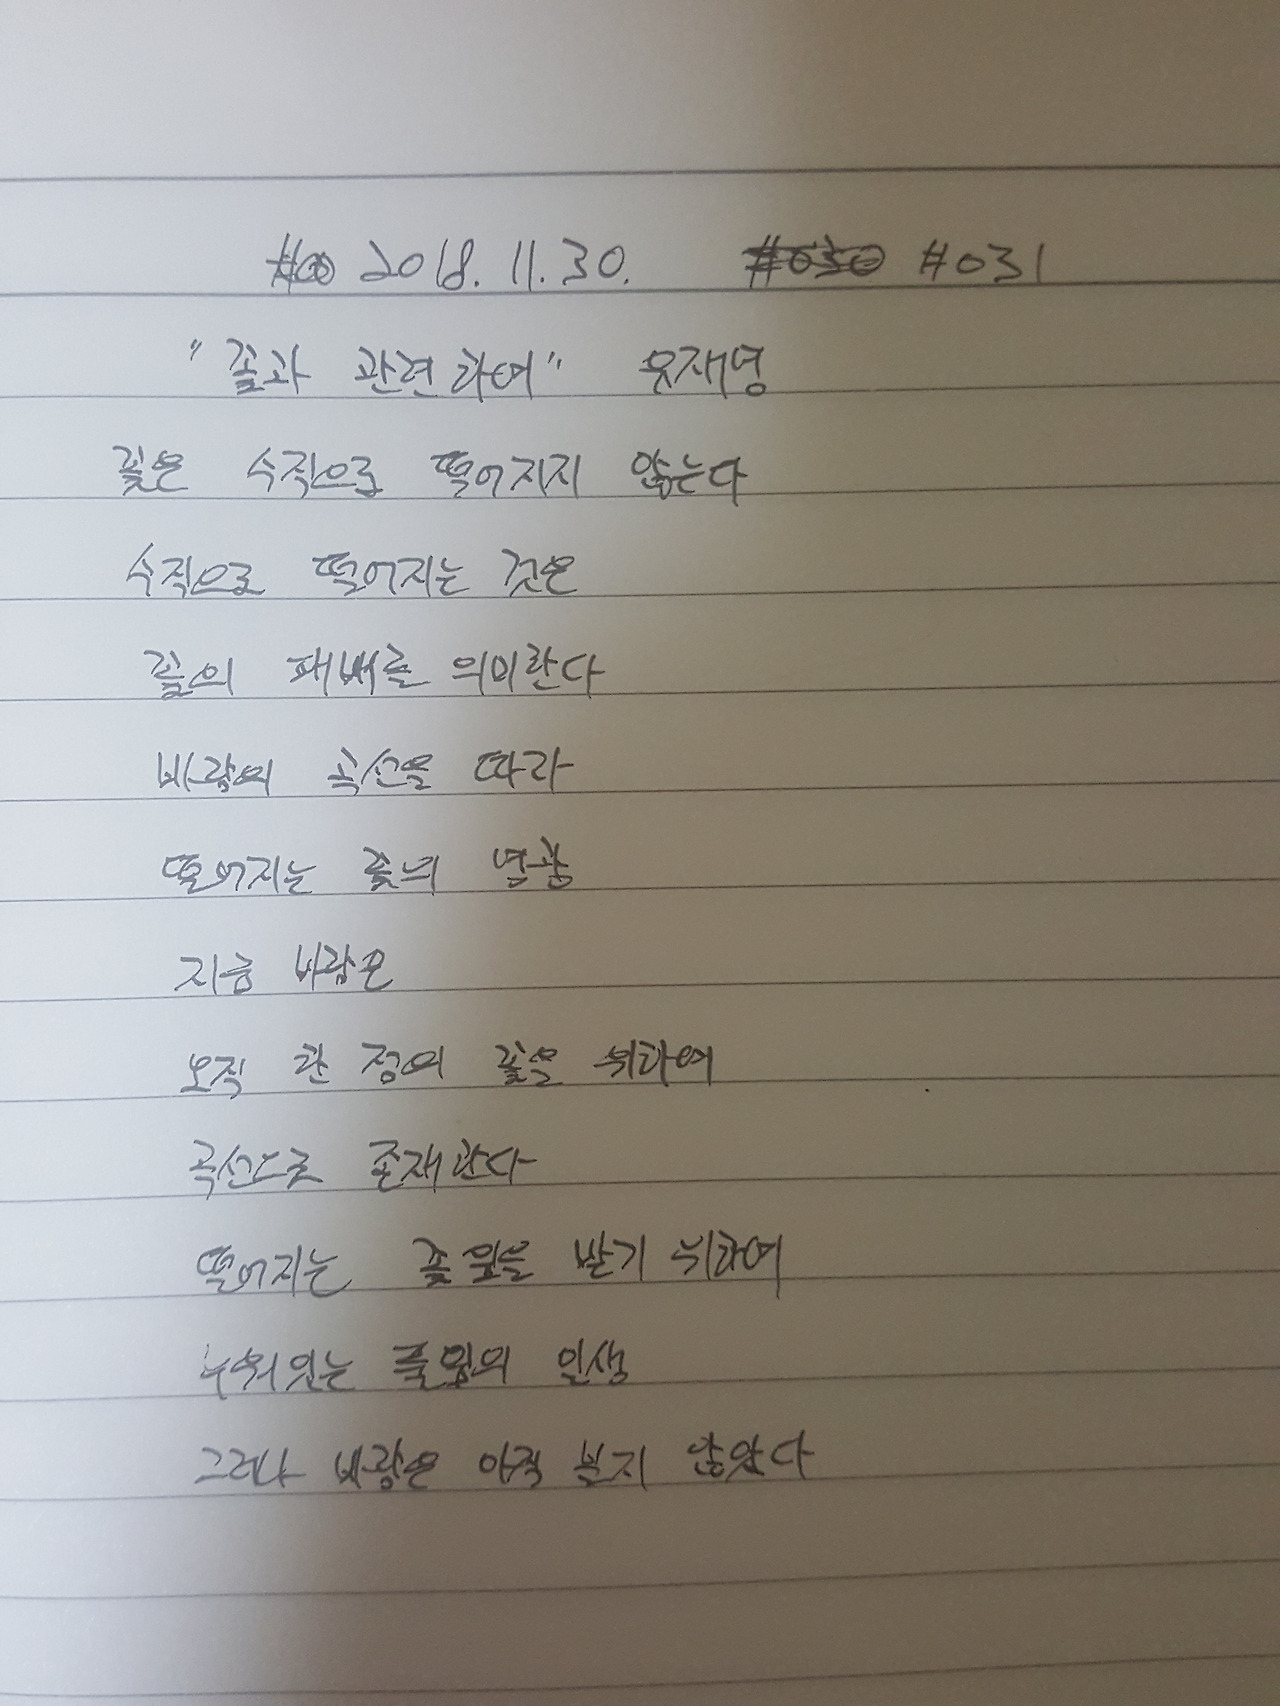 2018.11.30. #031
"꽃과 관련하여" 유재영
꽃은 수직으로 떨어지지 않는다
수직으로 떨어지는 것은
꽃의 패배를 의미한다
바람의 곡선을 따라
떨어지는 꽃의 영광
지금 바람은
오직 한 점의 꽃을 위하여
곡선으로 존재한다
떨어지는 꽃잎을 받기 위하여
누워있는 풀잎의 인생
그러나 바람은 아직 불지 않았다